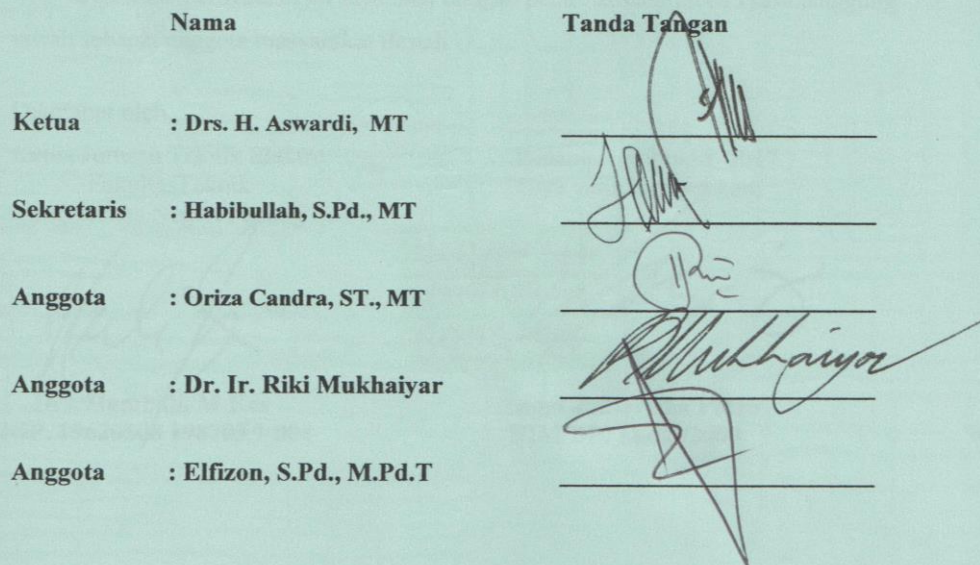 Nama Tanda Tangan
Ketua : Drs. H. Aswardi, MT
Sekretaris : Habibullah, S.Pd., MT
Anggota : Oriza Candra, ST., MT
Anggota : Dr. Ir. Riki Mukhaiyar
RMukhaiyar
Anggota : Elfizon, S.Pd., M.Pd.T